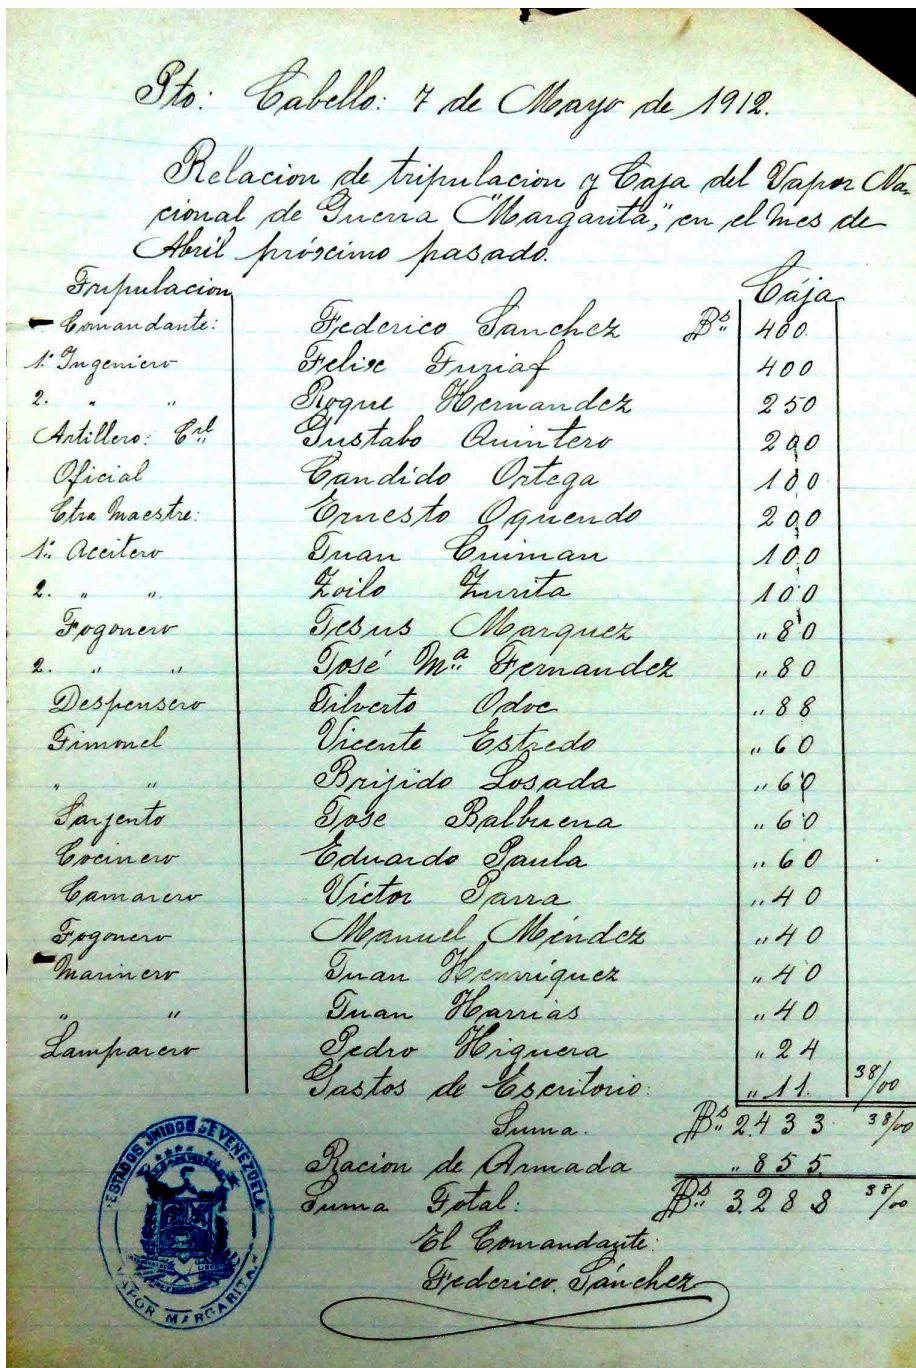 Pto: Cabello: 7 de Mayo de 1912.
Relacion de tripulacion y Caja del Vapor Na-
cional de Guerra "Margarita", en el mes de
Abril próximo pasado.
Tripulacion Caja
Comandante: Federico Sanchez Bs 400.
1º Ingeniero Felix Furiaf 400
2. " " Roque Hernandez 250
Artillero: Crl Gustabo Quintero 200
Oficial Candido Ortega 100
Ctra Maestre: Ernesto Oquendo 200
1º Aceitero Juan Cuiman 100
2. " " Zoilo Zurita 100
Fogonero Jesus Marquez " 80
2. " " José Mª Fernandez " 80
Despensero Jilverto Odoc " 88
Timonel Vicente Estredo " 60
" " Brijido Losada " 60
Sarjento Jose Balbuena " 60
Cocinero Eduardo Paula " 60
Camarero Victor Parra " 40
Fogonero Manuel Méndez " 40
Marinero Juan Henriquez " 40
" " Juan Harrias " 40
Lamparero Pedro Higuera " 24
Gastos de Escritorio: " 11. 38/00
Suma. Bs 2.433 38/00
Racion de Armada " 855.
Suma Total: Bs 3.288 38/00
El Comandante:
Federico Sánchez
ESTADOS UNIDOS DE VENEZUELA
VAPOR MARGARITA